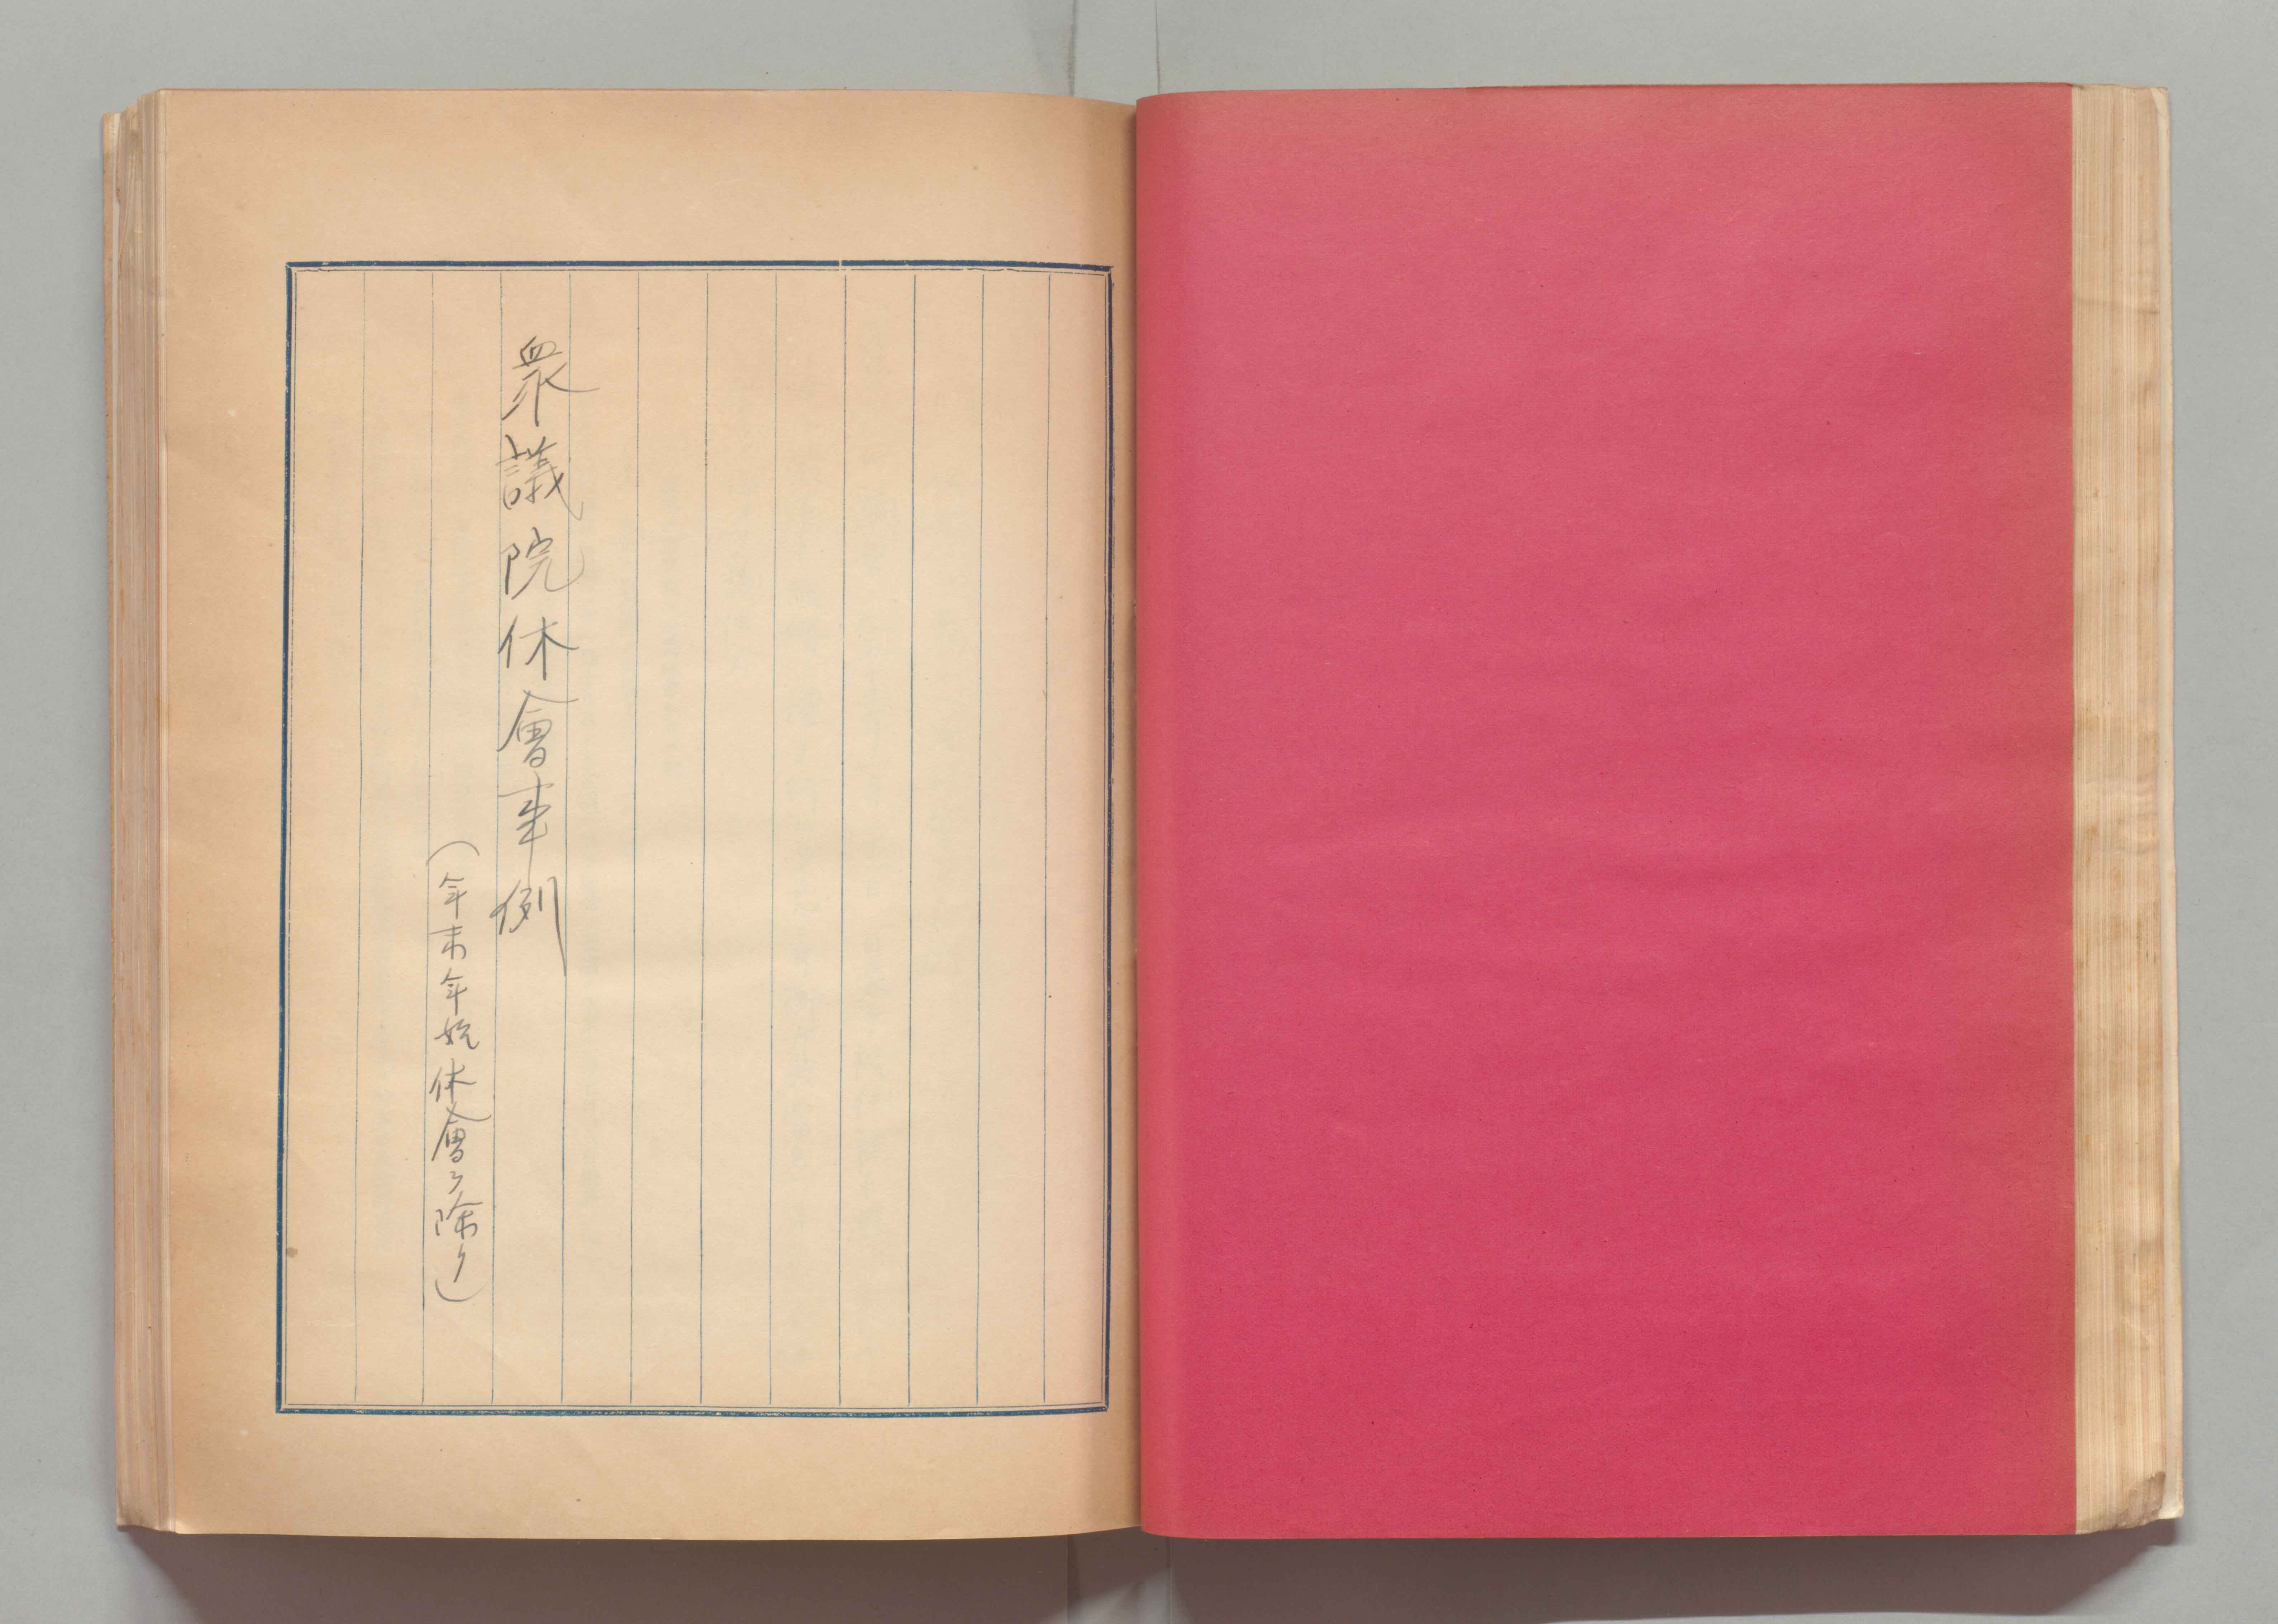 衆議院休會事例
（年末年始休會ヲ除ク）